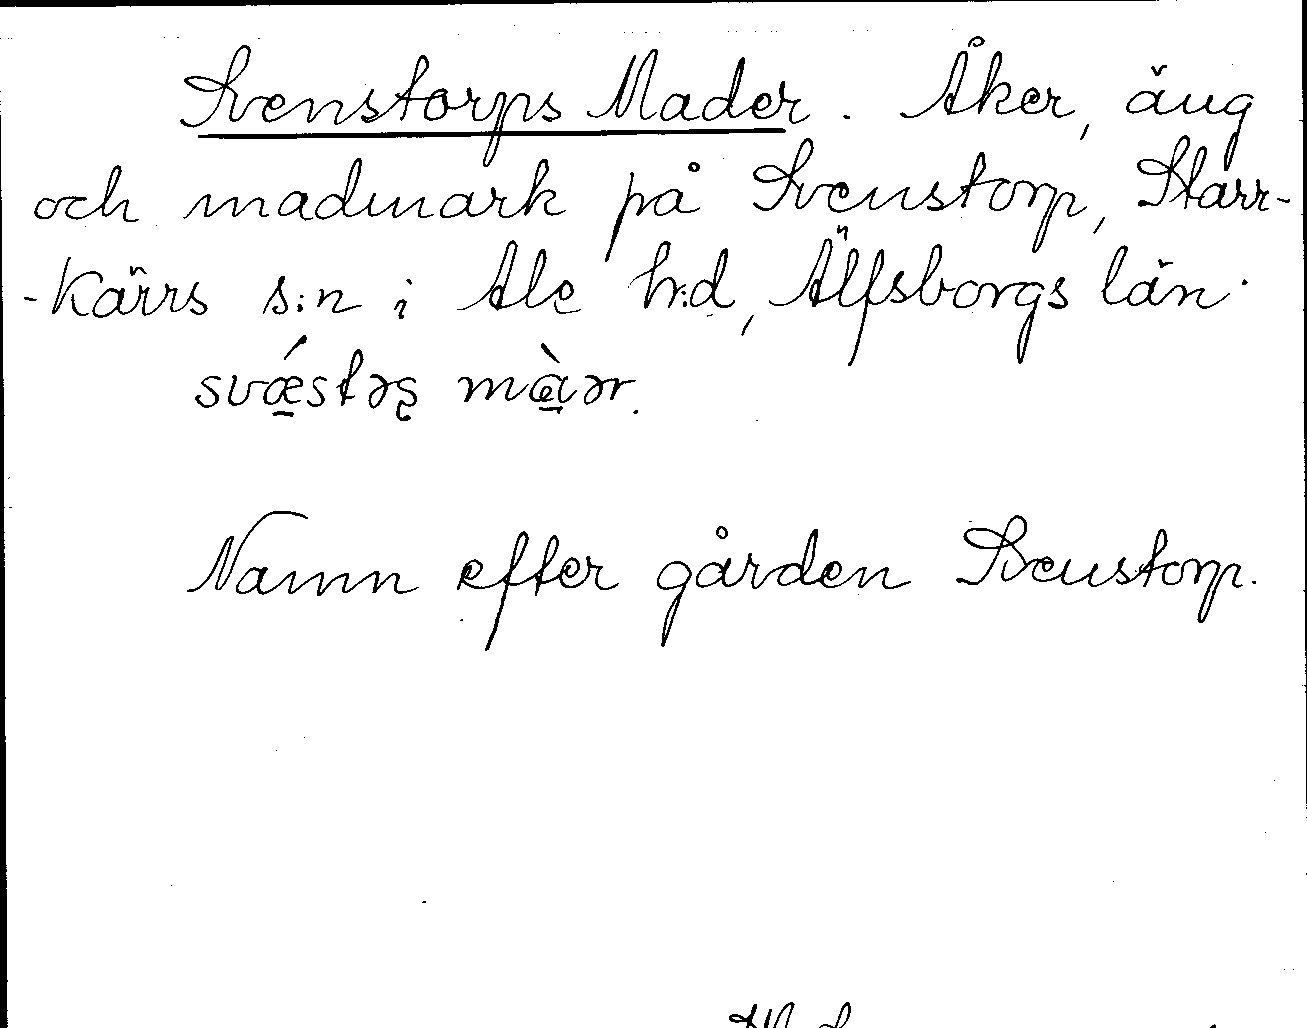 Svenstorps Mader. Åker, äng
och madmark på Svenstorp, Starr-
-kärrs s:n i Ale h:d, Älfsborgs län.
svǽ̠stəʂ mɑ̠̀ər.
Namn efter gården Svenstorp.